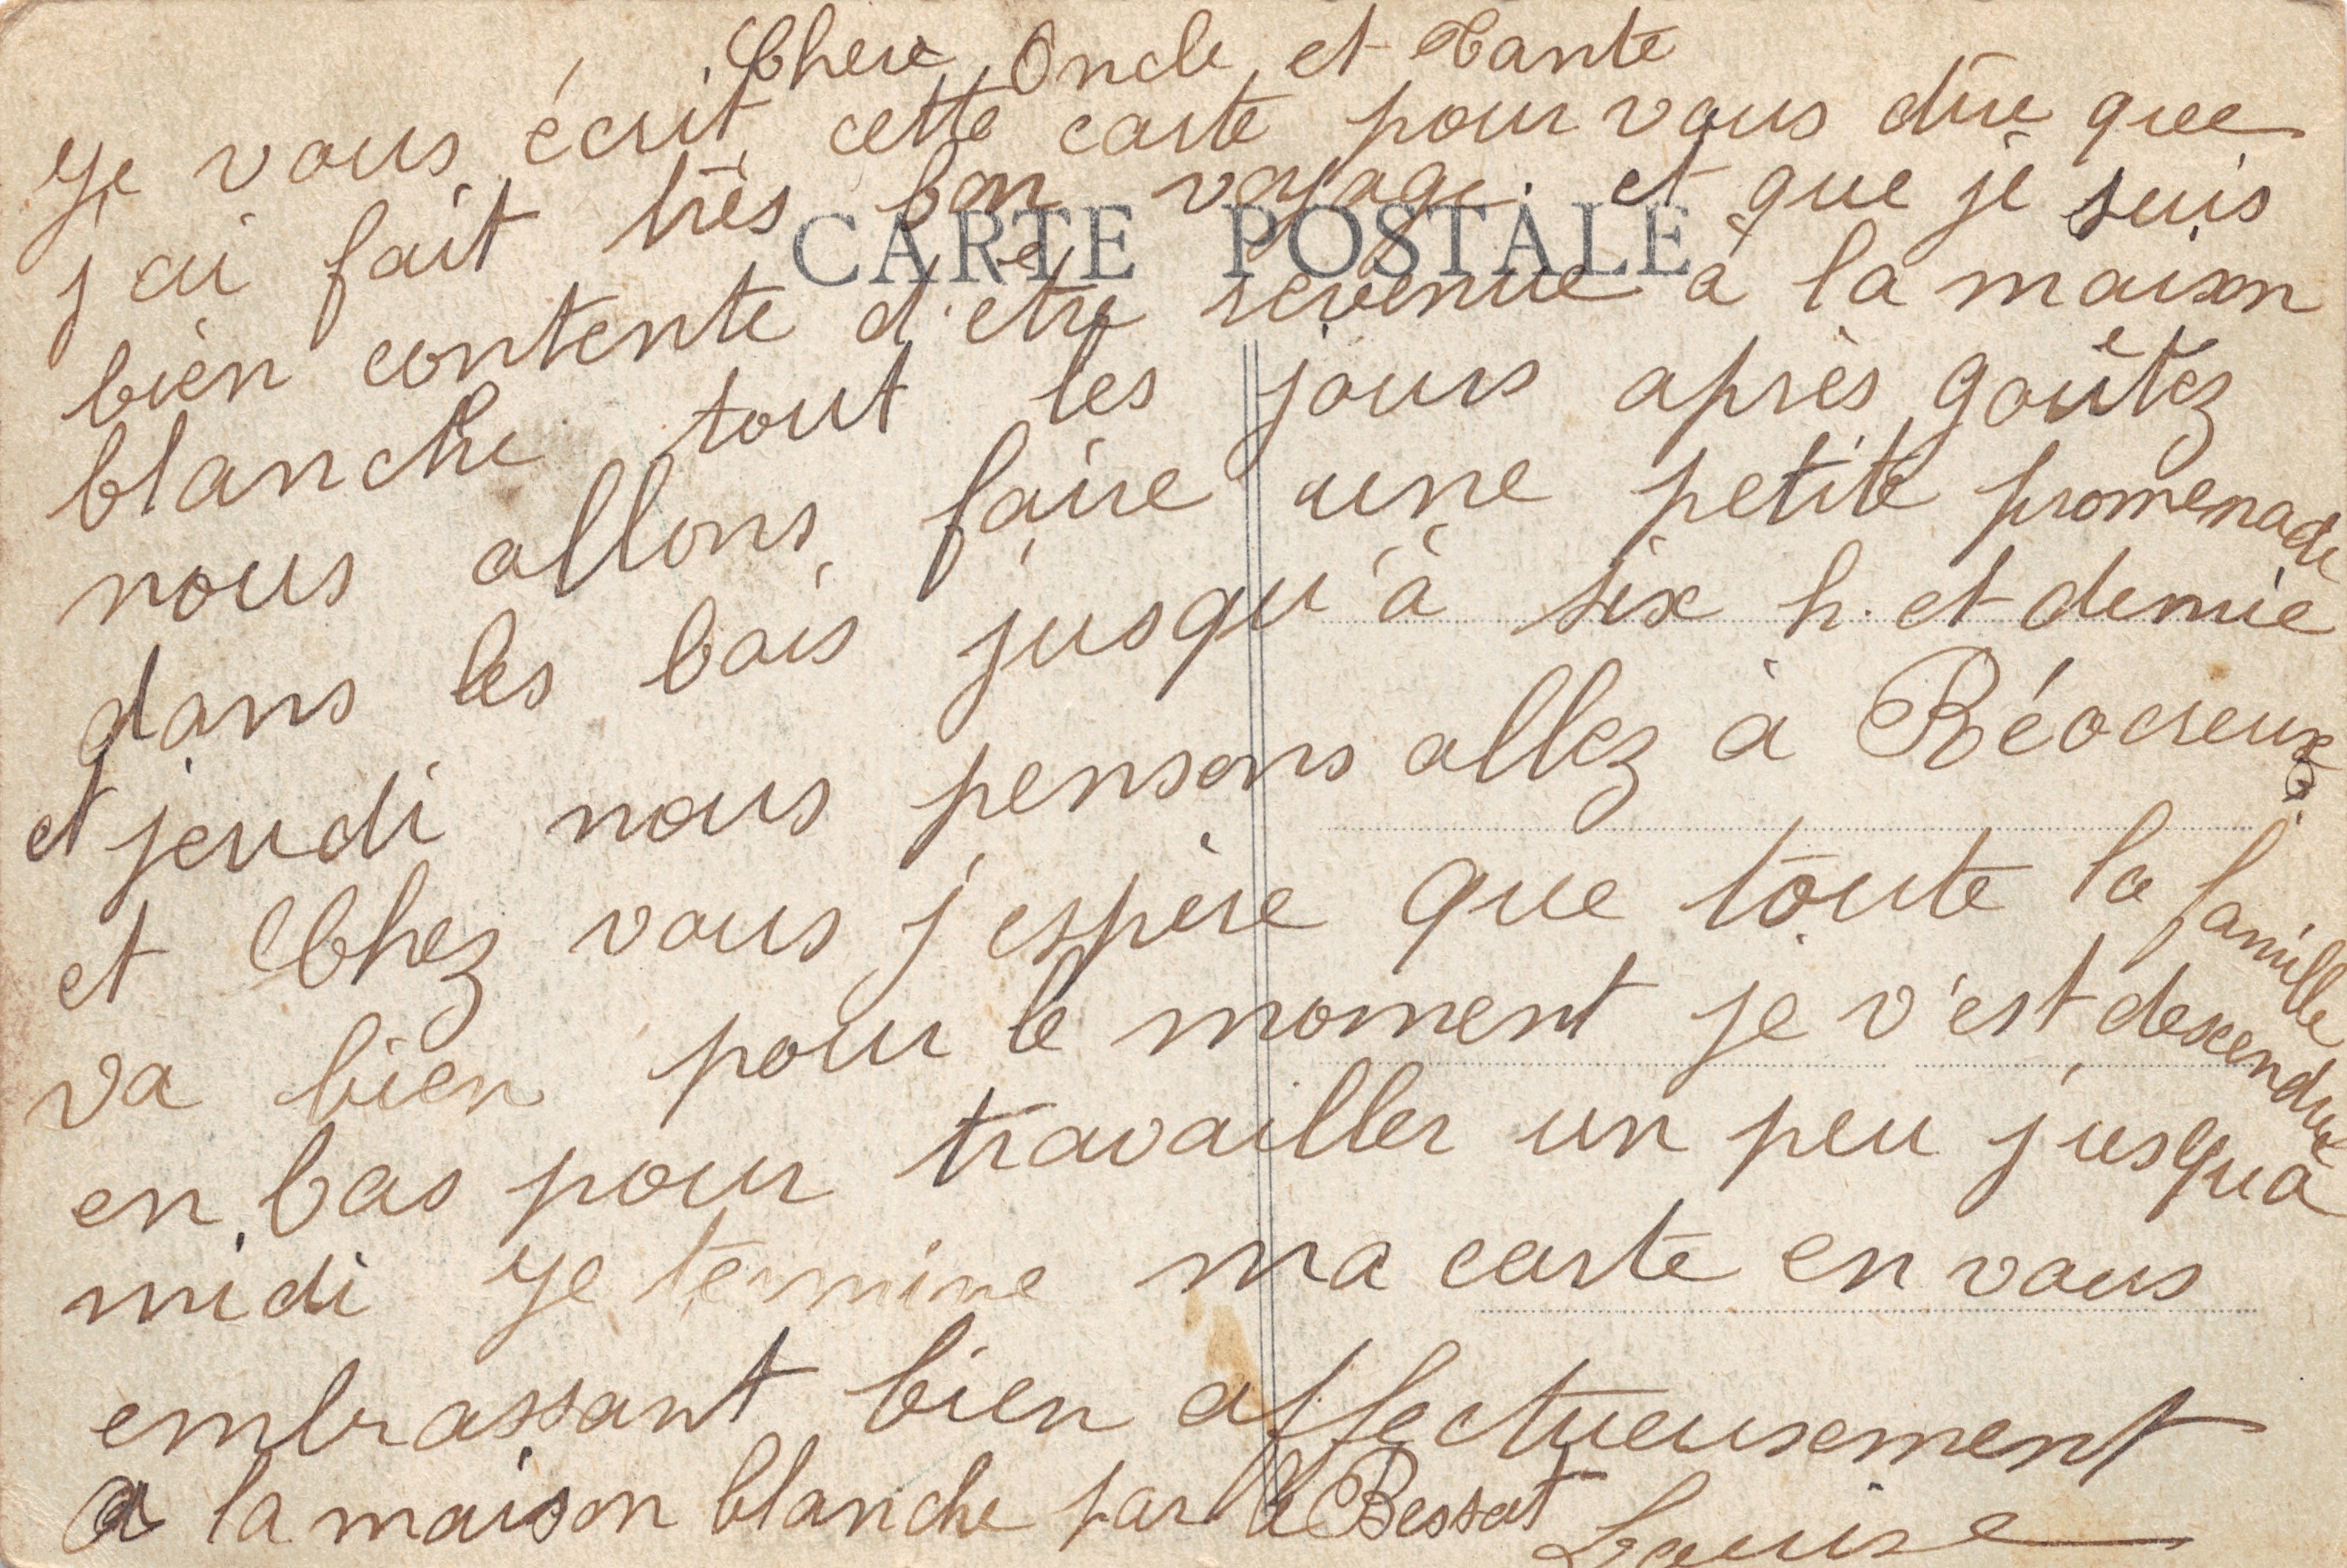 Chere Oncle et Tante
Je vous écrit cette carte pour vous dire que
j'ai fait très bon voyage. et que je suis
CARTE POSTALE
bien contente d'être revenue à la maison
blanche tout les jours après goûtez
nous allons faire une petite promenade
dans les bois jusqu'à six h. et demie
et jeudi nous pensons allez à Réocreux.
et Chez vous j'espère que toute la famille
va bien pour le moment je v'est descendre
en bas pour travailler un peu jusqu'a
midi Je termine ma carte en vous
embrassant bien affectueusement
a la maison blanche par le Bessat Louise